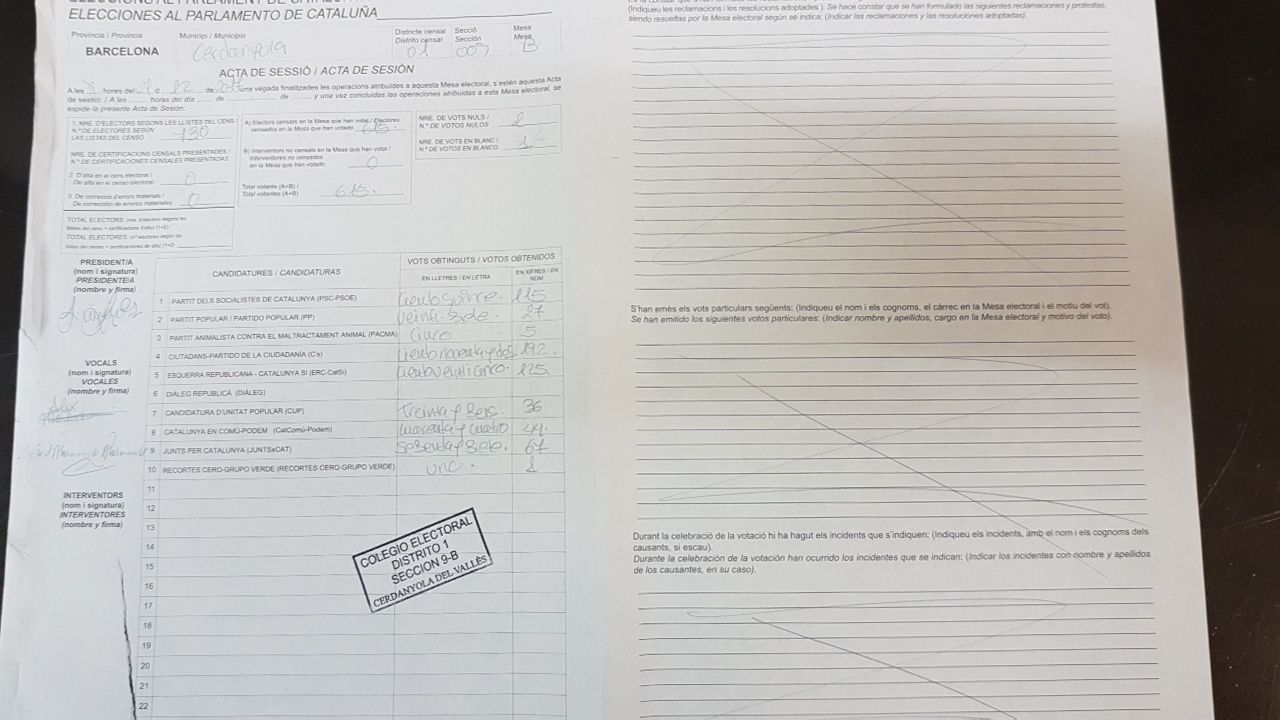 ELECCIONES AL PARLAMENTO DE CATALUÑA
Província / Provincia Municipi / Municipio Districte censal Secció Mesa
Distrito censal Sección Mesa
BARCELONA Cerdanyola 01 009 B
ACTA DE SESSIÓ / ACTA DE SESIÓN
A les hores del d de una vegada finalitzades les operacions atribuïdes a aquesta Mesa electoral, s'estén aquesta Acta
de sessió: / A las ........ horas del día ..... de ............ de ........, y una vez concluidas las operaciones atribuidas a esta Mesa electoral, se
expide la presente Acta de Sesión:
1. NRE. D'ELECTORS SEGONS LES LLISTES DEL CENS /
N.º DE ELECTORES SEGÚN
LAS LISTAS DEL CENSO 730
NRE. DE CERTIFICACIONS CENSALS PRESENTADES /
N.º DE CERTIFICACIONES CENSALES PRESENTADAS
2. D'alta en el cens electoral /
De alta en el censo electoral: 0
3. De correcció d'errors materials /
De corrección de errores materiales: 0
TOTAL ELECTORS: (nre. d'electors segons les
llistes del cens + certificacions d'alta) (1+2) /
TOTAL ELECTORES: (nº electores según las
listas del censo + certificaciones de alta) (1+2)
A) Electors censats en la Mesa que han votat / Electores
censados en la Mesa que han votado 615.
B) Interventors no censats en la Mesa que han votat /
Interventores no censados
en la Mesa que han votado 0
Total votants (A+B) /
Total votantes (A+B) 615.
NRE. DE VOTS NULS /
N.º DE VOTOS NULOS
NRE. DE VOTS EN BLANC /
N.º DE VOTOS EN BLANCO
PRESIDENT/A
(nom i signatura)
PRESIDENTE/A
(nombre y firma)
VOCALS
(nom i signatura)
VOCALES
(nombre y firma)
INTERVENTORS
(nom i signatura)
INTERVENTORES
(nombre y firma)
CANDIDATURES / CANDIDATURAS VOTS OBTINGUTS / VOTOS OBTENIDOS
EN LLETRES / EN LETRA EN XIFRES / EN NÚM
1 PARTIT DELS SOCIALISTES DE CATALUNYA (PSC-PSOE) Ciento quince. 115
2 PARTIT POPULAR / PARTIDO POPULAR (PP) Veinte siete. 27
3 PARTIT ANIMALISTA CONTRA EL MALTRACTAMENT ANIMAL (PACMA) Cinco 5
4 CIUTADANS-PARTIDO DE LA CIUDADANÍA (C's) Ciento noventa y dos 192
5 ESQUERRA REPUBLICANA - CATALUNYA SI (ERC-CatSí) Ciento veinticinco. 125
6 DIÀLEG REPUBLICÀ (DIÀLEG)
7 CANDIDATURA D'UNITAT POPULAR (CUP) Treinta y Seis. 36
8 CATALUNYA EN COMÚ-PODEM (CatComú-Podem) Cuarenta y cuatro 44.
9 JUNTS PER CATALUNYA (JUNTSxCAT) Sesenta y siete. 67
10 RECORTES CERO-GRUPO VERDE (RECORTES CERO-GRUPO VERDE) uno. 1
11
12
13
14
15
16
17
18
19
20
21
22
COLEGIO ELECTORAL
DISTRITO 1
SECCION 9-B
CERDANYOLA DEL VALLÈS
(Indiqueu les reclamacions i les resolucions adoptades ). Se hace constar que se han formulado las siguientes reclamaciones y protestas,
siendo resueltas por la Mesa electoral según se indica: (Indicar las reclamaciones y las resoluciones adoptadas).
S'han emès els vots particulars següents: (Indiqueu el nom i els cognoms, el càrrec en la Mesa electoral i el motiu del vot).
Se han emitido los siguientes votos particulares: (Indicar nombre y apellidos, cargo en la Mesa electoral y motivo del voto).
Durant la celebració de la votació hi ha hagut els incidents que s'indiquen: (Indiqueu els incidents, amb el nom i els cognoms dels
causants, si escau).
Durante la celebración de la votación han ocurrido los incidentes que se indican: (Indicar los incidentes con nombre y apellidos
de los causantes, en su caso).